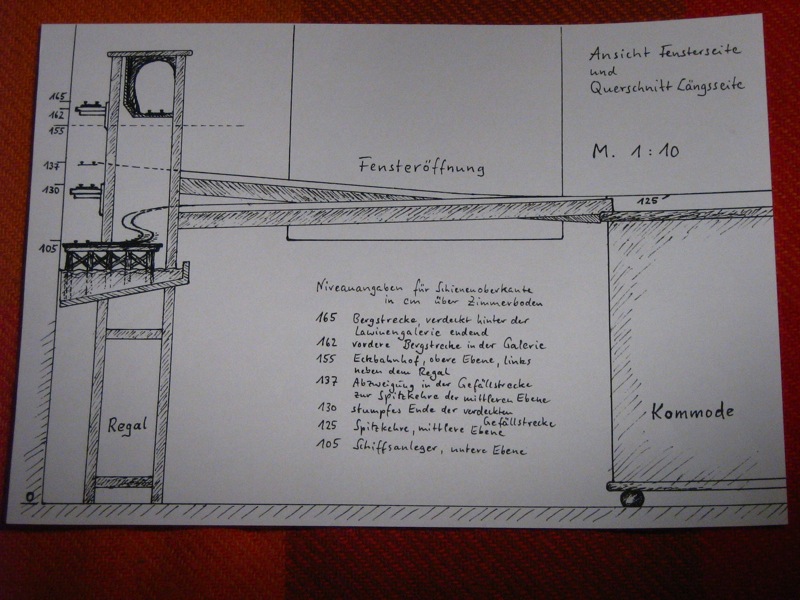 Ansicht Fensterseite
und
Querschnitt Längsseite
M. 1:10
165
162
155
137
130
105
0
Fensteröffnung
125
Niveauangaben für Schienenoberkante
in cm über Zimmerboden
165 Bergstrecke, verdeckt hinter der
Lawinengalerie endend
162 vordere Bergstrecke in der Galerie
155 Eckbahnhof, obere Ebene, links
neben dem Regal
137 Abzweigung in der Gefällstrecke
zur Spitzkehre der mittleren Ebene
130 stumpfes Ende der verdeckten
Gefällstrecke
125 Spitzkehre, mittlere Ebene
105 Schiffsanleger, untere Ebene
Regal
Kommode